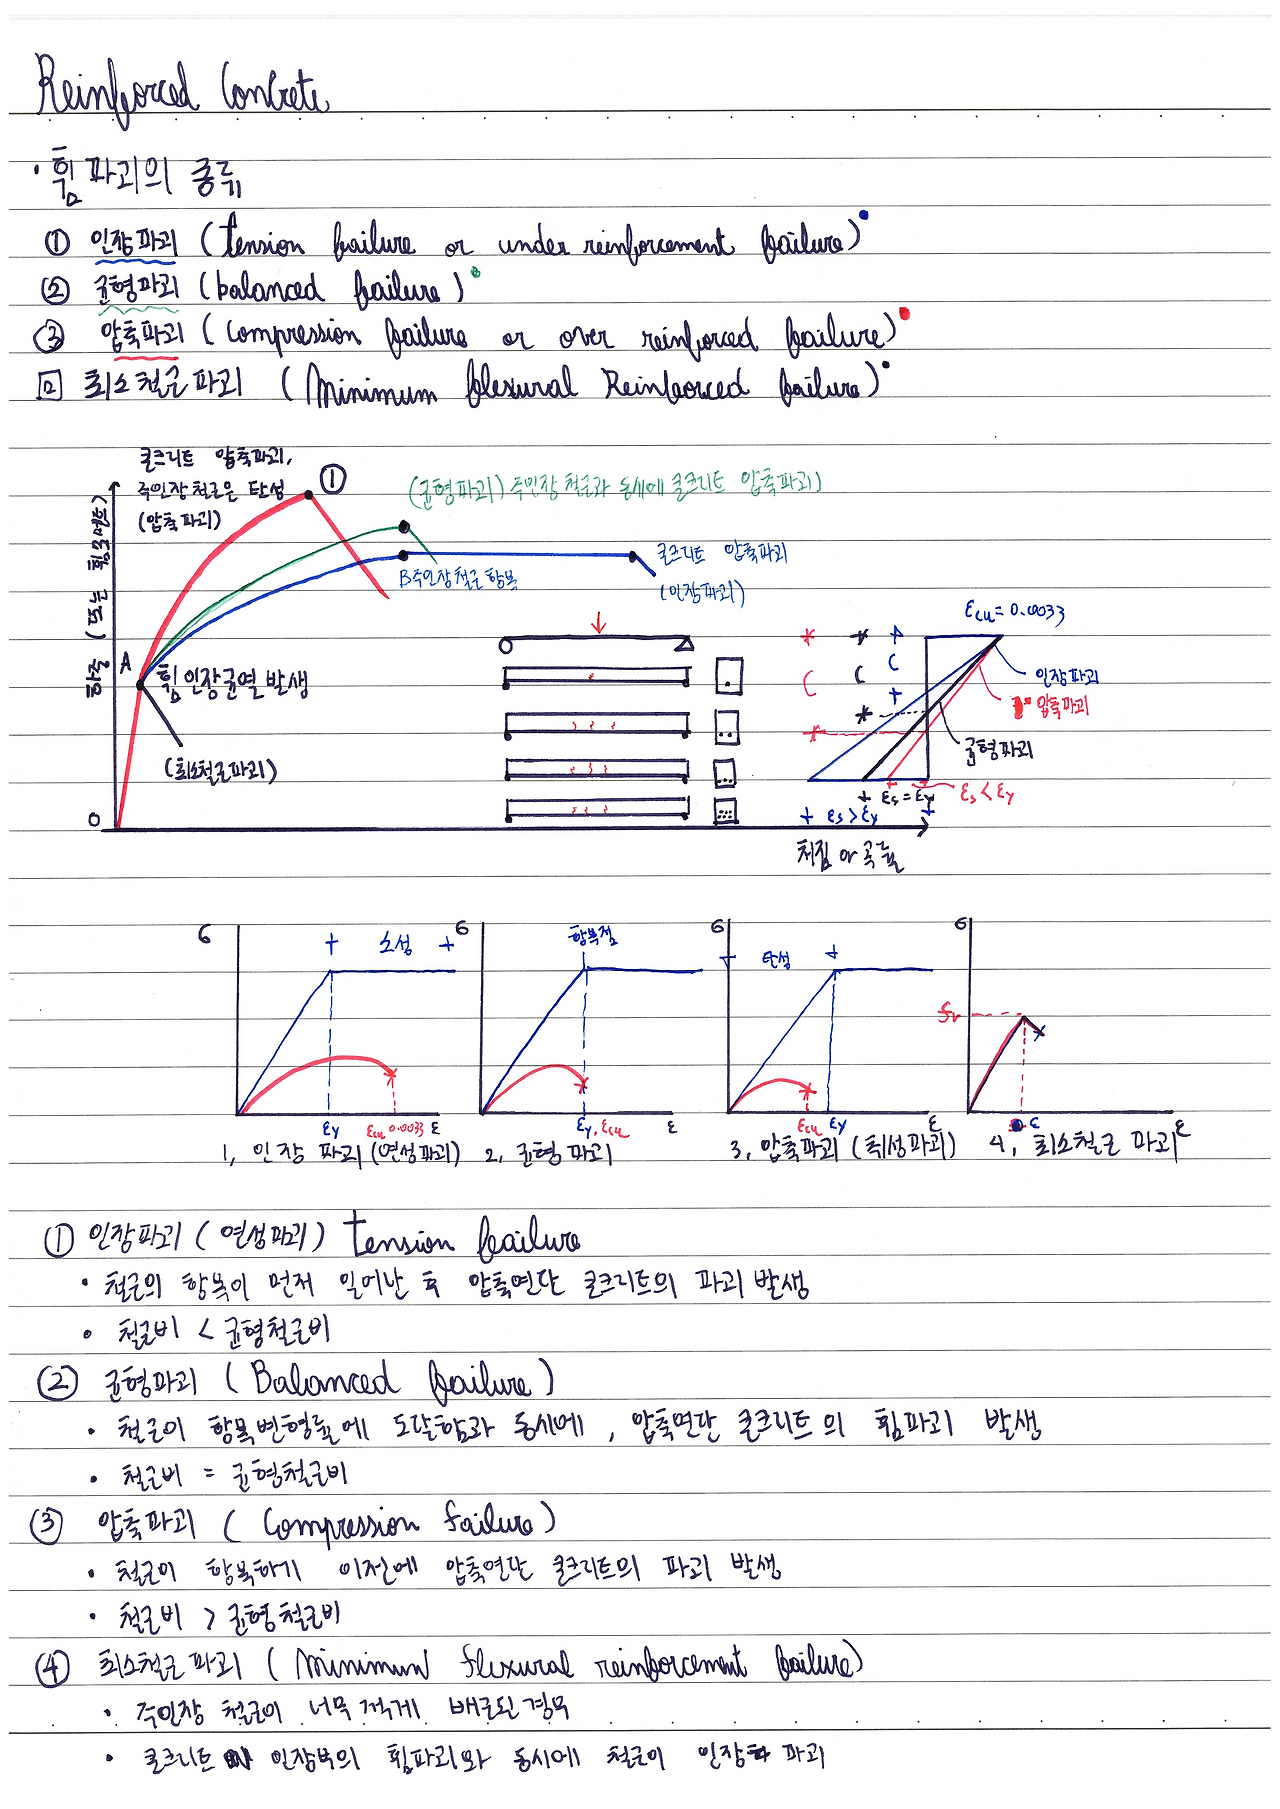 Reinforced Concrete
· 휨 파괴의 종류
① 인장파괴 (tension failure or under reinforcement failure)
② 균형파괴 (balanced failure)
③ 압축파괴 (Compression failure or over reinforced failure)
최소철근파괴 (Minimum flexural Reinforced failure)
콘크리트 압축파괴,
주인장 철근은 탄성
(압축파괴)
①
(균형파괴) 주인장 철근과 동시에 콘크리트 압축파괴)
B주인장 철근 항복
콘크리트 압축파괴
(인장파괴)
하중 (또는 휨모멘트)
A
휨 인장균열 발생
(최소철근파괴)
O
처짐 or 곡률
εcu = 0.0033
인장파괴
압축파괴
균형파괴
εs = εy
εs < εy
εs > εy
6 소성
εy εcu 0.0033 ε
1, 인장 파괴 (연성파괴)
6 항복점
εy, εcu ε
2, 균형파괴
6 탄성
εcu εy ε
3, 압축파괴 (취성파괴)
6
fr
ε
ε
4, 최소철근 파괴
① 인장파괴 (연성파괴) tension failure
· 철근의 항복이 먼저 일어난 후 압축연단 콘크리트의 파괴 발생
· 철근비 < 균형철근비
② 균형파괴 (Balanced failure)
· 철근이 항복변형률에 도달함과 동시에, 압축연단 콘크리트의 휨파괴 발생
· 철근비 = 균형철근비
③ 압축파괴 (Compression failure)
· 철근이 항복하기 이전에 압축연단 콘크리트의 파괴 발생
· 철근비 > 균형철근비
④ 최소철근파괴 (Minimum flexural reinforcement failure)
· 주인장 철근이 너무 적게 배근된 경우
· 콘크리트 인장부의 휨파괴와 동시에 철근이 인장 파괴